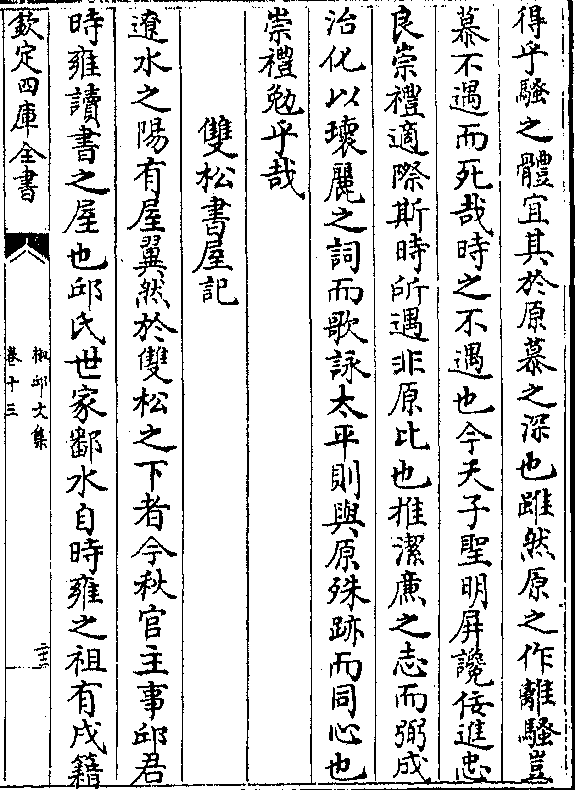 得乎騷之體宜其於原慕之深也雖然原之作離騷豈
慕不遇而死哉時之不遇也今天子聖明屏讒佞進忠
良崇禮適際斯時所遇非原比也推潔廉之志而弼成
治化以瓌麗之詞而歌詠太平則與原殊跡而同心也
崇禮勉乎哉
雙松書屋記
遼水之陽有屋翼然於雙松之下者今秋官主事邱君
時雍讀書之屋也邱氏世家鄱水自時雍之祖有戍籍
欽定四庫全書
椒邱文集
卷十三